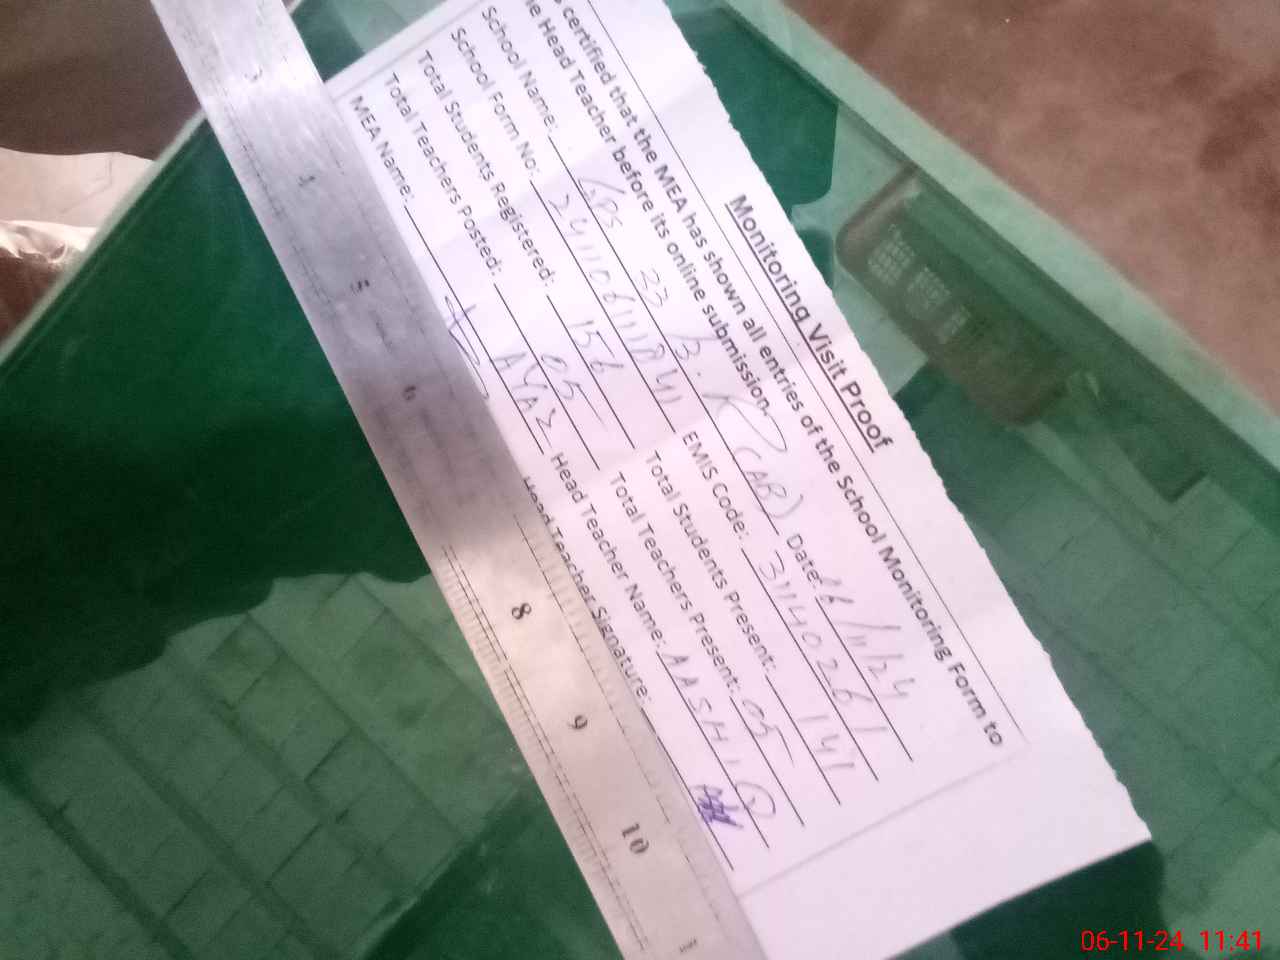 Monitoring Visit Proof
certified that the MEA has shown all entries of the School Monitoring Form to
Head Teacher before its online submission.
School Name: GPS 23 B.R (AB) Date: 6/11/24
School Form No: EMIS Code: 31140261
Total Students Registered: 156 Total Students Present: 141
Total Teachers Posted: 05 Total Teachers Present: 05
MEA Name: AYAZ Head Teacher Name: AASHIQ
Head Teacher Signature:
3
4
5
6
8
9
10
06-11-24 11:41